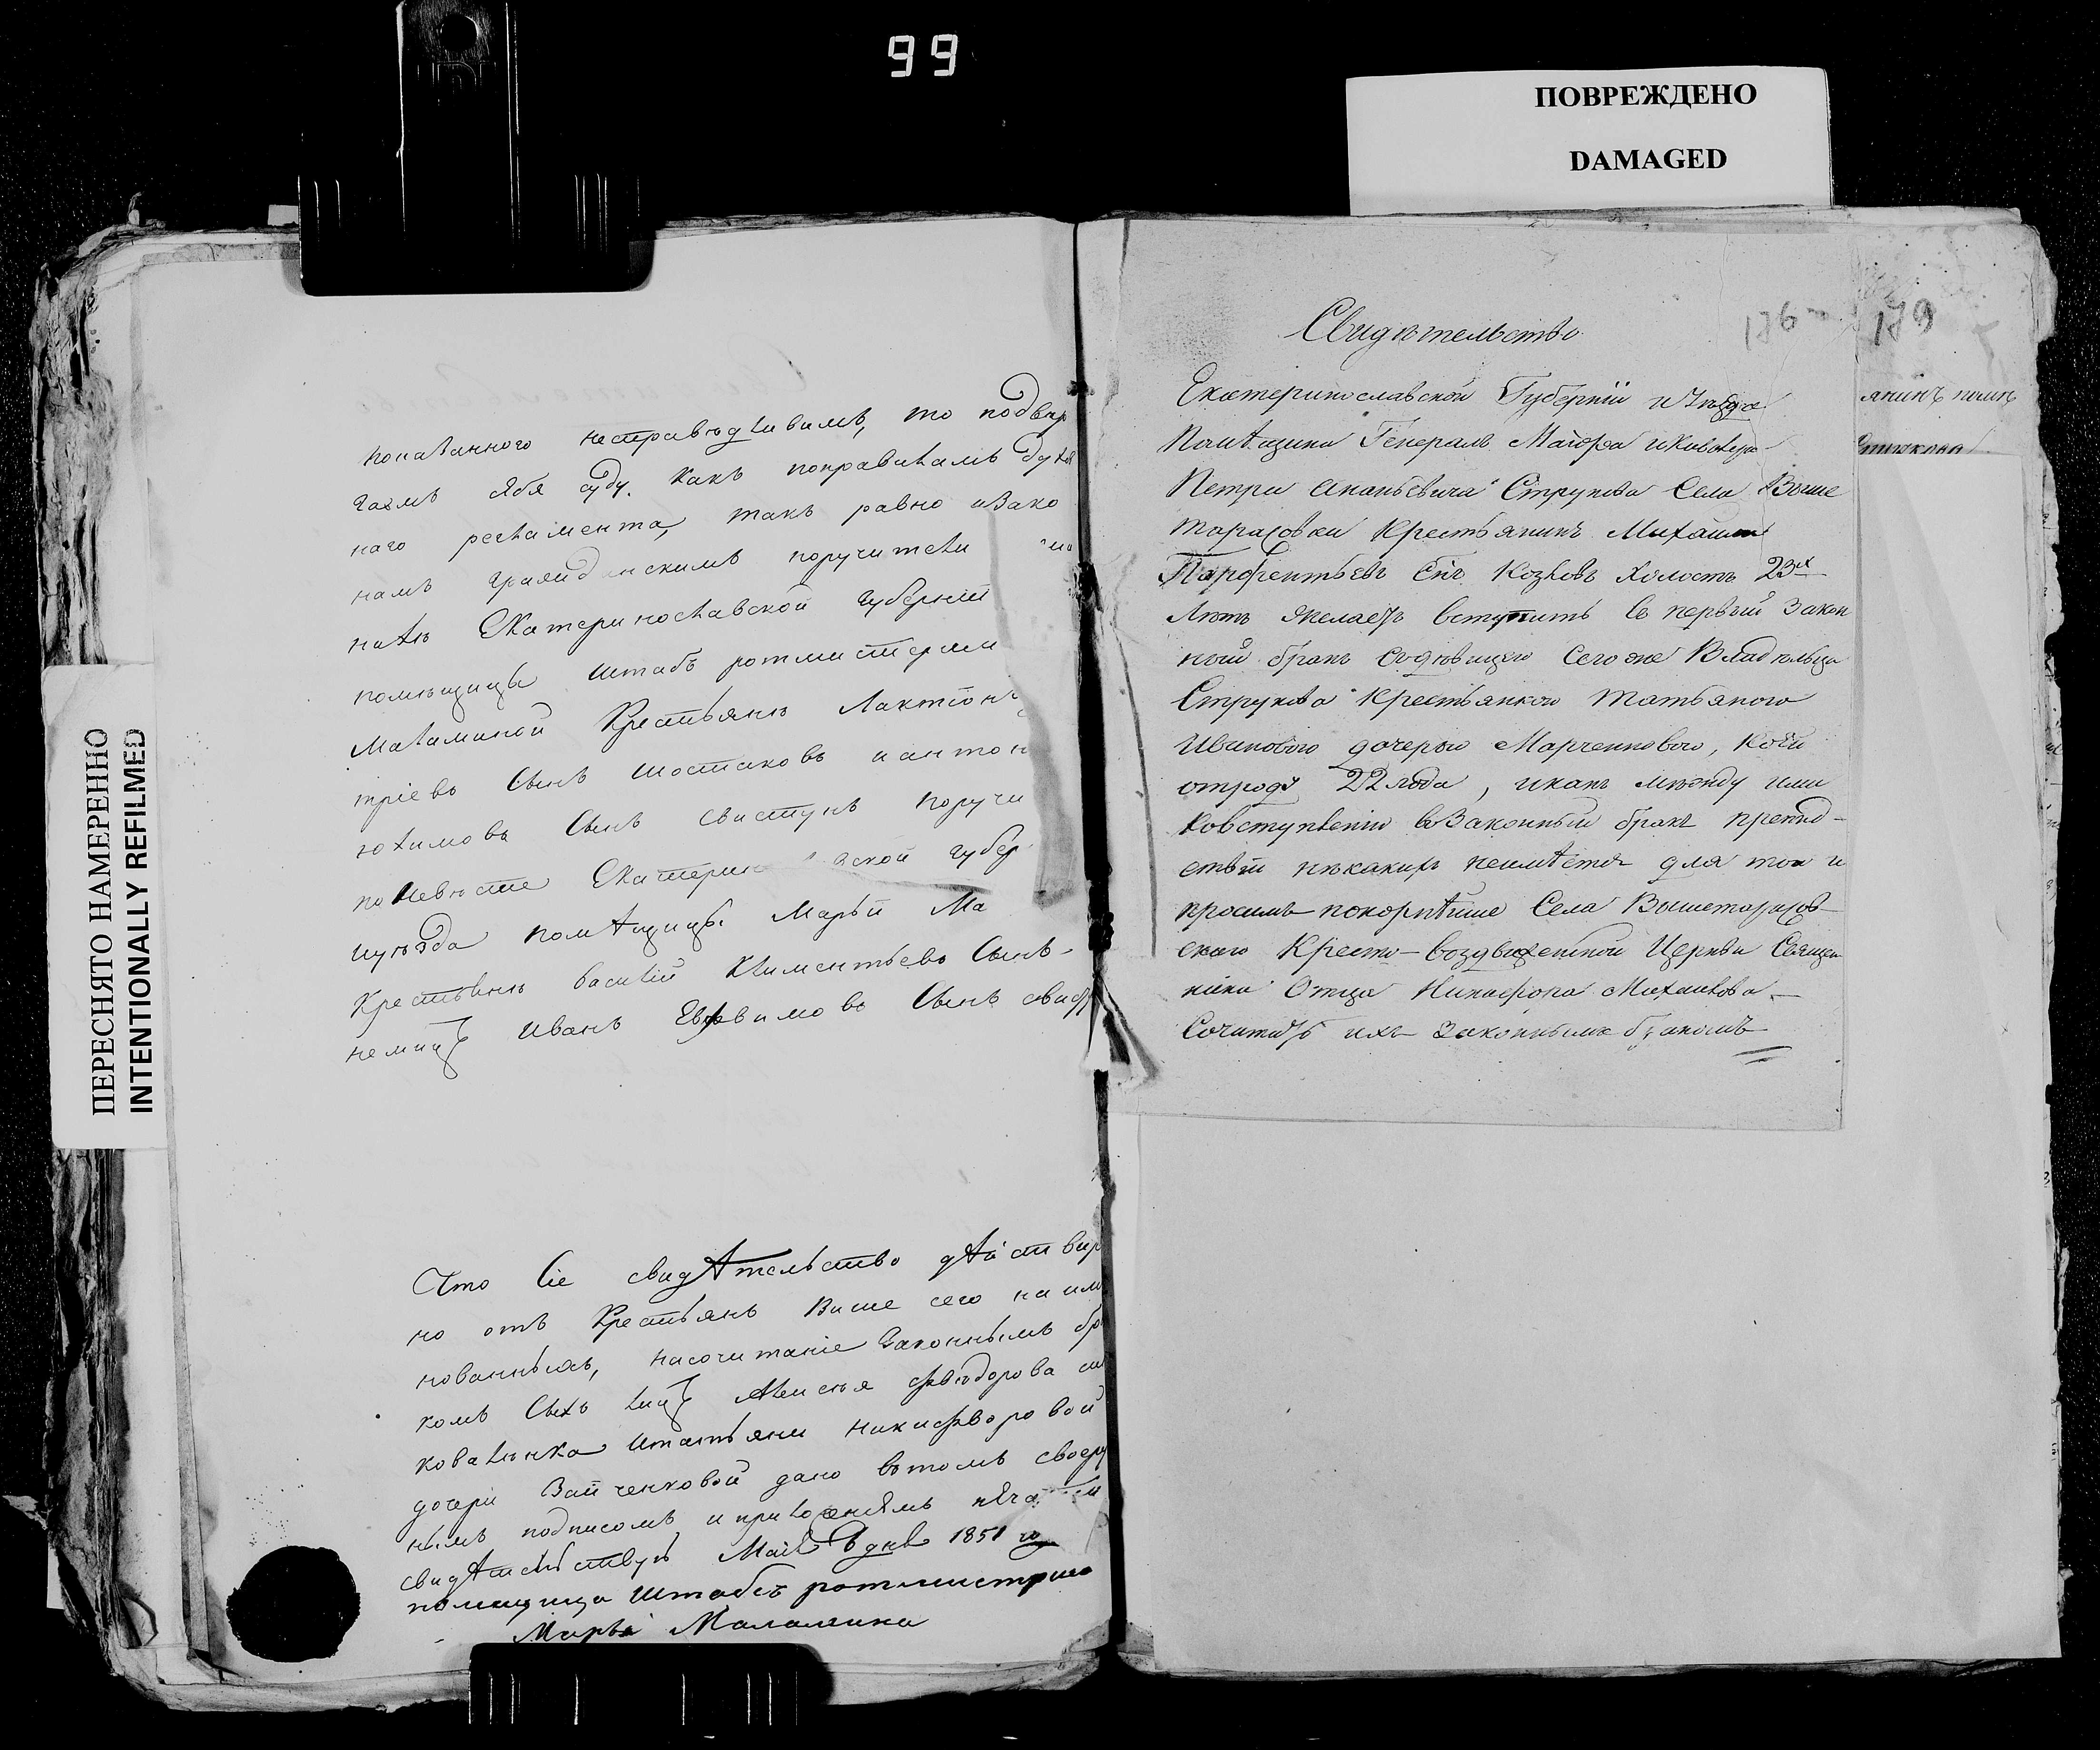 99
ПОВРЕЖДЕНО
DAMAGED
ПЕРЕСНЯТО НАМЕРЕННО
INTENTIONALLY REFILMED
показанного несправѣдливимъ, то подвер
гаемъ себя суду. какъ поправиламъ духов
наго регламента, такъ равно изако
намъ граждански­мъ поручители
Екатеринославской губернии
помѣщици штабъ ротмистерши
Маламиной Крестьянъ Лактіонъ
тріевъ Сынъ шостаковъ иантон
юхимовъ Сынъ свистунъ поручи
поневѣсте Екатерин вской губер
иуѣзда помѣщици Марьи Ма
Крестьянъ василій Климентьевъ Сынъ
немиць иванъ Евфимовъ Сынъ
Что сіе свидѣтельство дѣйствит
но отъ Крестьянъ Више сего наиме
нованныхъ, насочитаніе Законнымъ бр
комъ Сыхъ лиць Алексѣя федорова
коваленка итатьяни никифоровой
дочери Зайченковой дано вътомъ своеру
нымъ подписомъ иприложениемъ печати
свидѣтельствую Май дня 1851 го
помещица Штабсъ ротмистрша
Марья Маламина
Свидѣтельство
176
179
Екатеринославской Губерніи иУѣзда
Помѣщика Генералъ Маіора иКавалера
Петра Ананьевича Струкова Села Выше
тарасовки Крестьянинъ Михаилъ
Парфентьевъ Сынъ Козловъ холостъ 23х
лѣтъ желаетъ вступить въ первый Закон
ный бракъ съдѣвицею Сегоже Владѣльца
Струкова Крестьянкою Татьяною
Ивановою дочерью Марченковою, коей
отроду 22 года, икакъ между ими
Ковступленію въЗаконный бракъ препяд-
ствій никакихъ неимѣется для того и
просимъ покорнѣйше Села Вышетарасов-
скаго Кресто-воздвиженской Церкви Священ
ника Отца Никифора Михайлова
Сочитать ихъ законнымъ бракомъ
янинъ